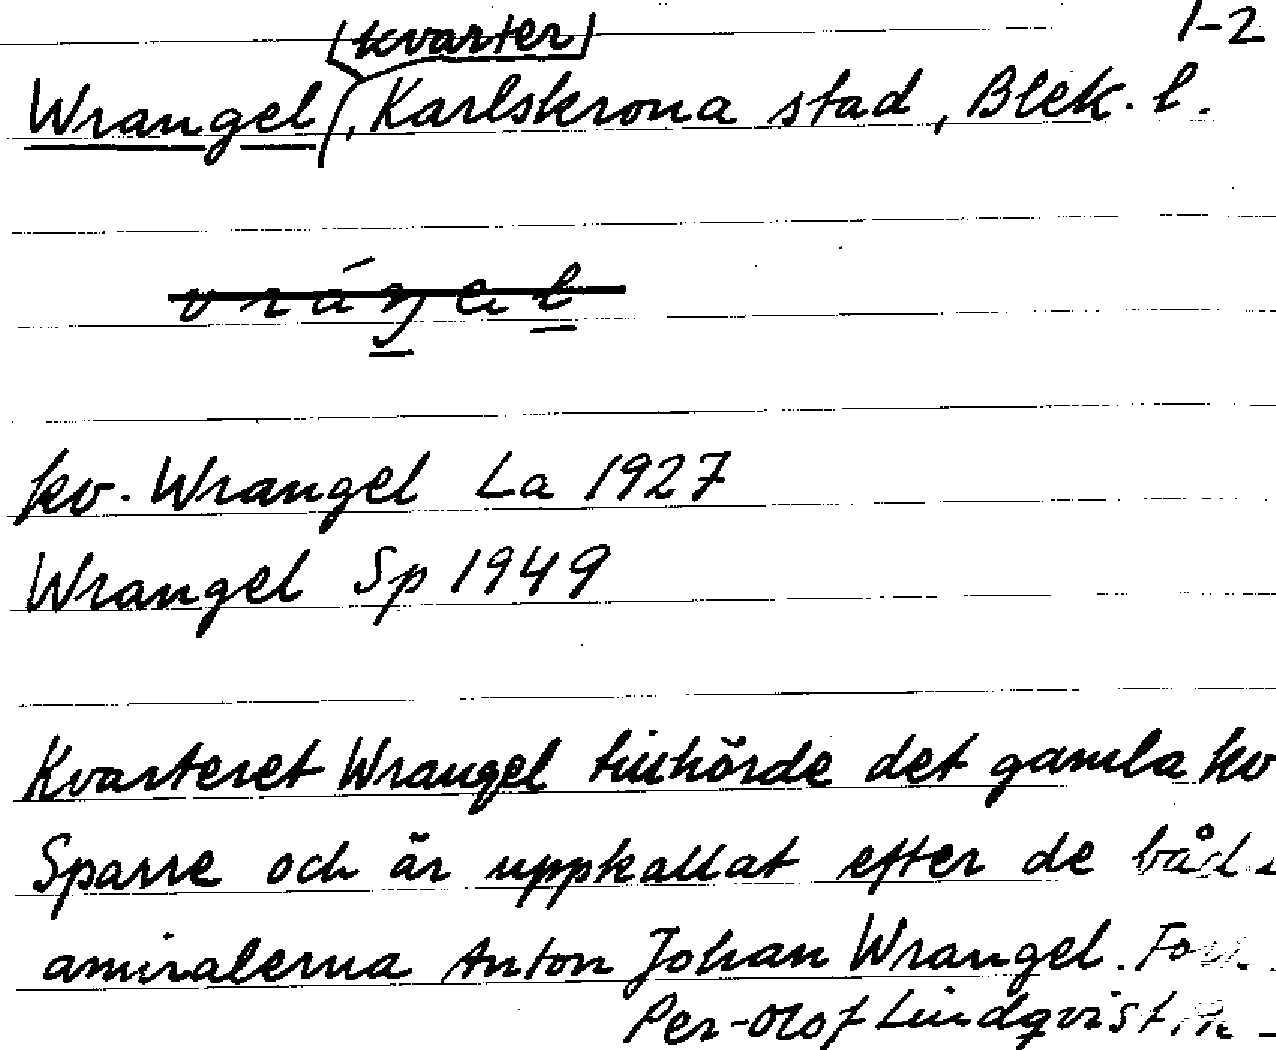 1-2
(kvarter)
Wrangel, Karlskrona stad, Blek. l.
vráŋel
kv. Wrangel La 1927
Wrangel Sp 1949
Kvarteret Wrangel tillhörde det gamla kv
Sparre och är uppkallat efter de båd
amiralerna Anton Johan Wrangel.
Per-Olof Lindqvist